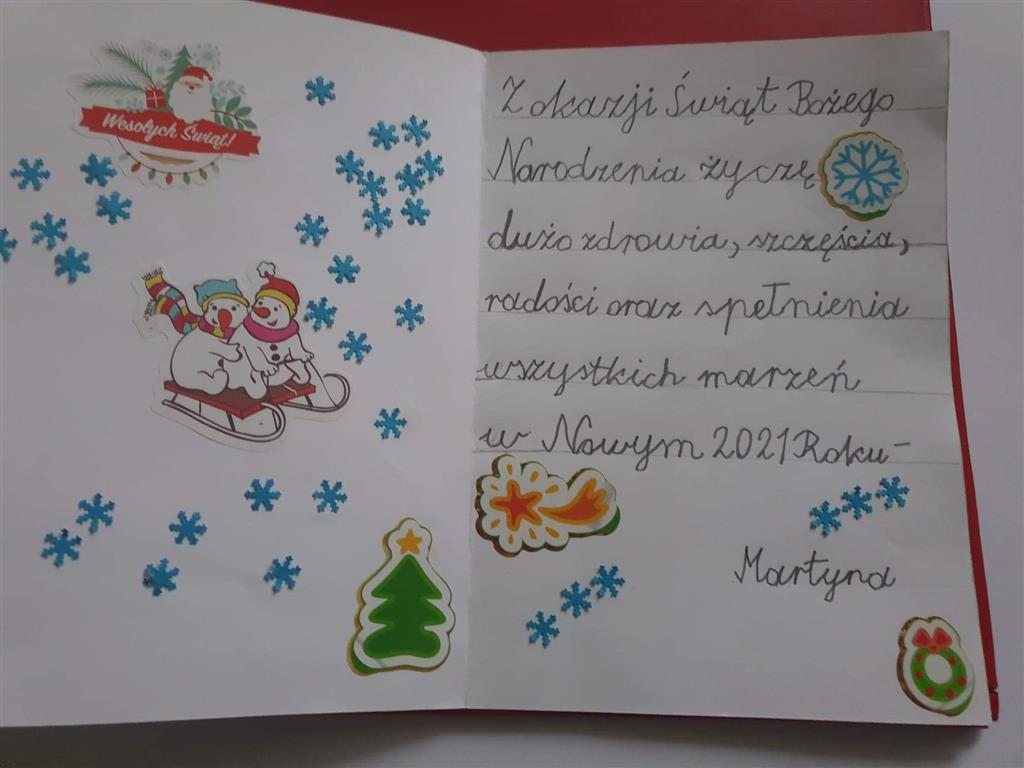 Wesołych Świąt!
Z okazji Świąt Bożego
Narodzenia życzę
dużo zdrowia, szczęścia,
radości oraz spełnienia
wszystkich marzeń
w Nowym 2021 Roku-
Martyna